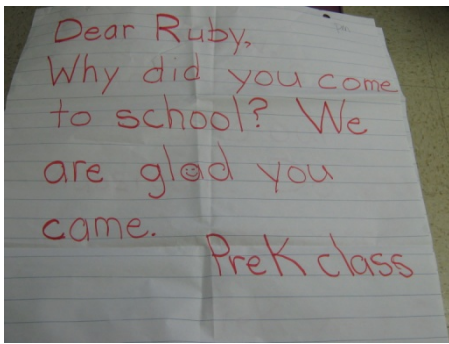 Dear Ruby,
Why did you come
to school? We
are glad you
came.
PreK class